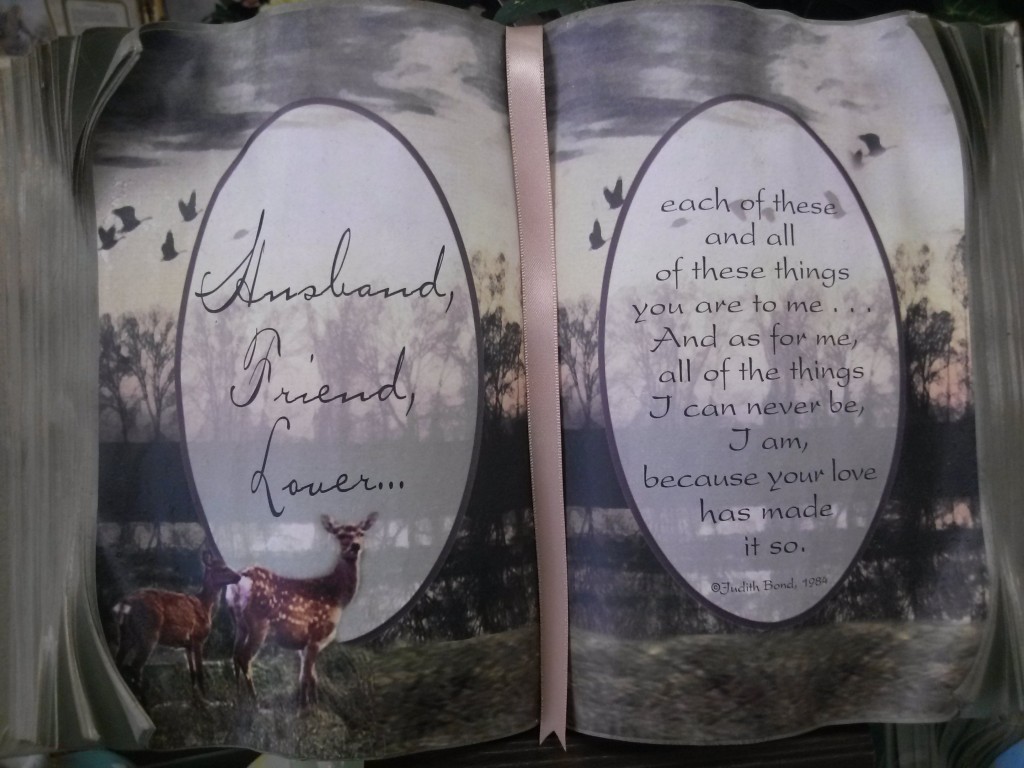 Husband,
Friend,
Lover...
each of these
and all
of these things
you are to me . . .
And as for me,
all of the things
I can never be,
I am,
because your love
has made
it so.
©Judith Bond, 1984